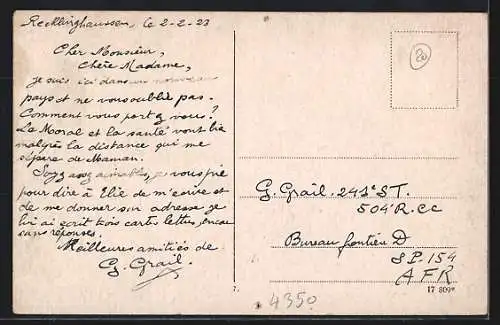 Recklinghaussen, le 2-2-23
Cher Monsieur,
Chère Madame,
je suis ici dans un nouveau
pays et ne vous oublie pas.
Comment vous portez vous?
Le Moral et la santé vont bien
malgrés la distance qui me
sépare de Maman.
Soyez assez aimables, je vous prie
pour dire à Elie de m'ecrire et
de me donner son adresse je
lui ai ecrit trois cartes lettres, encore
sans réponses.
Meilleures amitiés de
G. Grail.
20
G. Grail. 241e ST.
504e R.cc
Bureau frontière D
SP. 154
AFR
7.
17 809*
4350